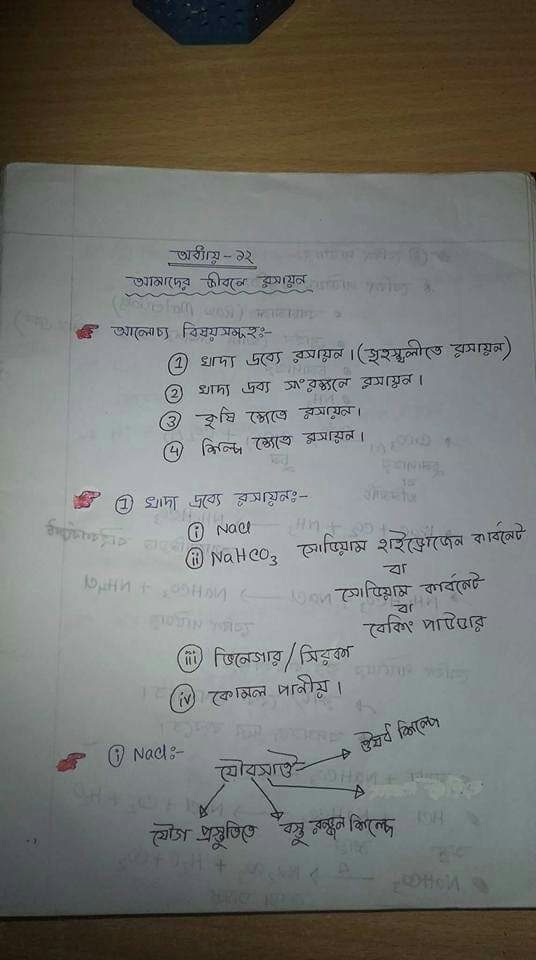 অধ্যায় - ১২
আমাদের জীবনে রসায়ন
আলোচ্য বিষয়সমূহঃ-
① খাদ্য দ্রব্যে রসায়ন। (গৃহস্থলীতে রসায়ন)
② খাদ্য দ্রব্য সংরক্ষনে রসায়ন।
③ কৃষি ক্ষেত্রে রসায়ন।
④ শিল্প ক্ষেত্রে রসায়ন।
① খাদ্য দ্রব্যে রসায়নঃ-
ⓘ NaCl
ⅱ NaHCO₃ সোডিয়াম হাইড্রোজেন কার্বনেট
বা
সোডিয়াম কার্বনেট
বা
বেকিং পাউডার
ⅲ ভিনেগার / সিরকা
ⅳ কোমল পানীয়।
ⓘ NaCl:-
ঔষধ শিল্পে
যৌগ প্রস্তুতিতে বস্তু রন্ধন শিল্পে